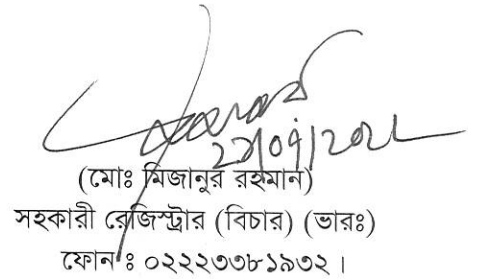 (মোঃ মিজানুর রহমান)
সহকারী রেজিস্ট্রার (বিচার) (ভারঃ)
ফোন ঃ ০২২২৩৩৮১৯৩২ ।